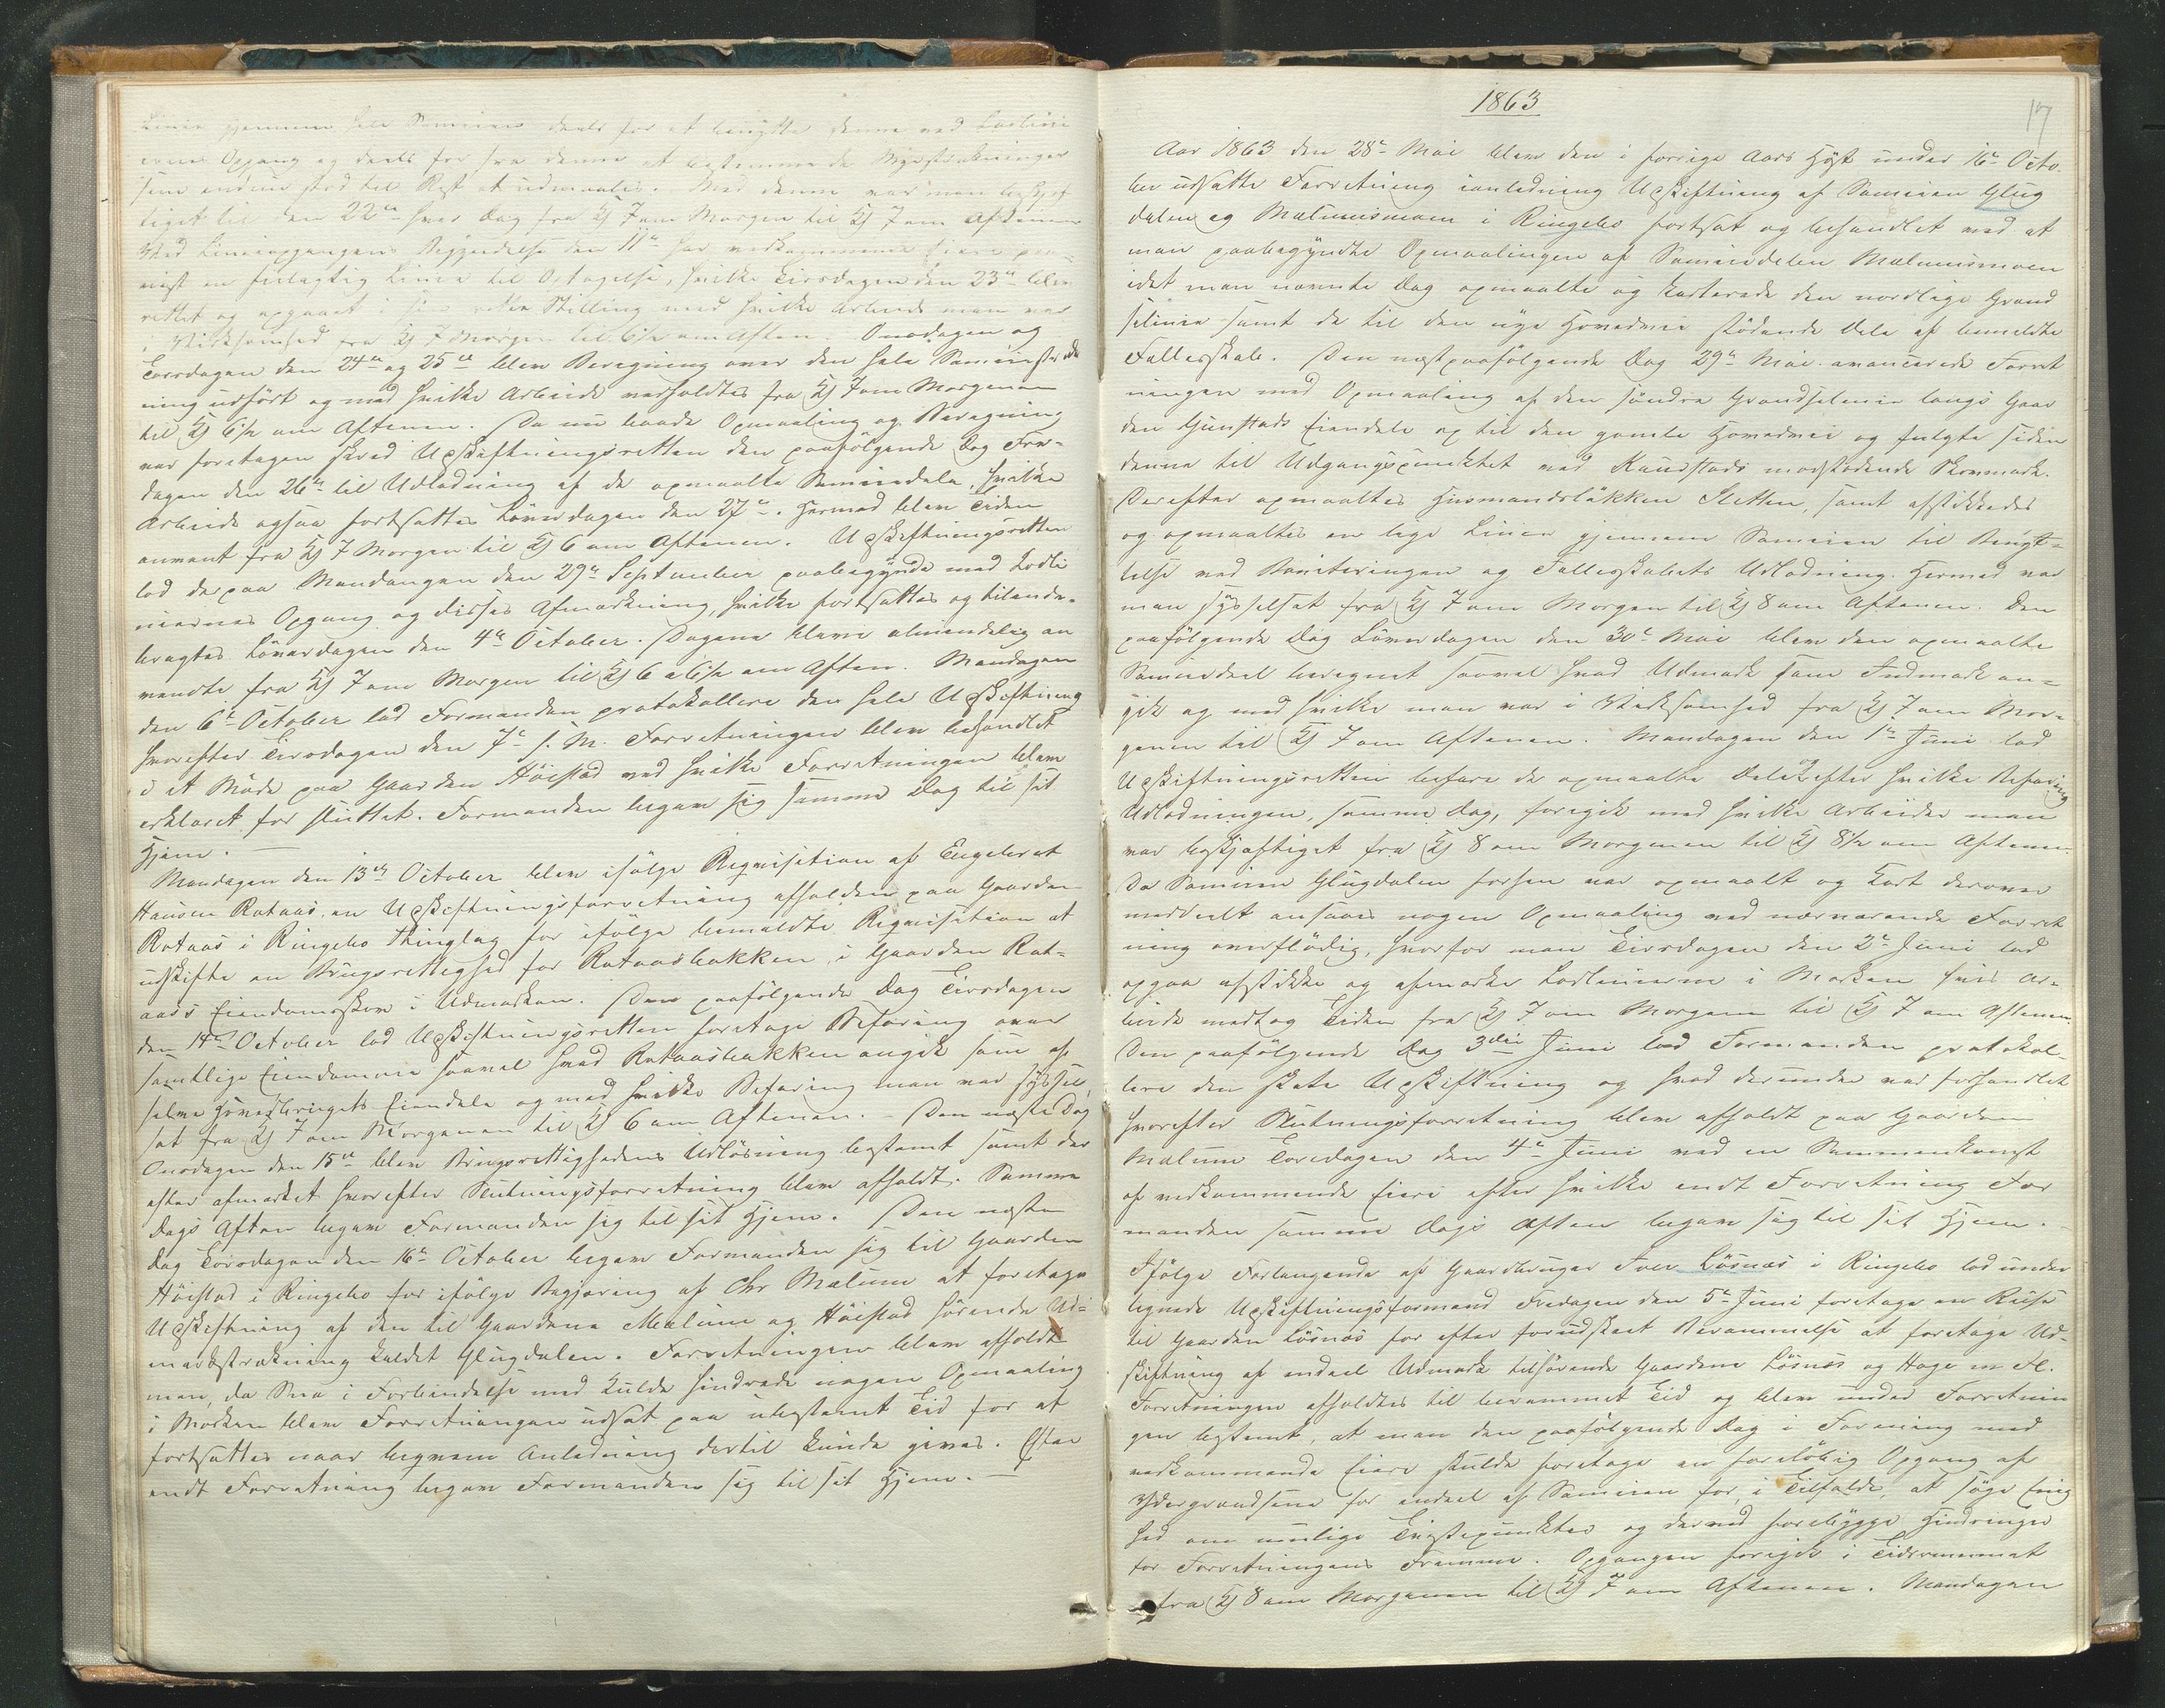 Linie gjennem hele Sameien deels for at benytte denne ved Lodlini
ernes Opgang og deels for fra denne at bestemme de Myrstrækninger
som endnu stod til Rest at udmaales. Med denne var man beskjæf
tiget til den 22de hver Dag fra Kl 7 om Morgen til Kl 7 om Aftenen
Ved Linieopgangens Begyndelse den 11te har vedkommende Eiere paa-
viist en feilagtig Linie til Optagelse, hvilke Tirsdagen den 23de blev
rettet og opgaaet i sin rette Stilling med hvilke Arbeide man var
i Virksomhed fra Kl 7 Morgen til 6½ om Aften. Onsdagen og
Torsdagen den 24de og 25de blev Beregning over den hele Sameiestræk
ning udført og med hvilke Arbeide vedholdtes fra Kl 7 om Morgenen
til Kl 6½ om Aftenen. Da nu baade Opmaaling og Beregning
var foretagen skred Udskiftningsretten den paafølgende Dag Fre-
dagen den 26de til Udlodning af de opmaalte Sameiedele, hvilke
Arbeide ogsaa fortsattes Løverdagen den 27de. Hermed blev Tiden
anvent fra Kl 7 Morgen til Kl 6 om Aftenen. Udskiftningsretten
lod derpaa Mandagen den 29de September paabegynde med Lodli
niernes Opgang og disses Afmærkning, hvilke fortsattes og tilende-
bragtes Løverdagen den 4de October. Dagene bleve almindelig an
vendte fra Kl 7 om Morgen til Kl 6 a 6½ om Aften. Mandagen
den 6te October lod Formanden protokollere den hele Udskiftning
hvorefter Tirsdagen den 7de s. M. Forretningen blev behandlet
i et Møde paa Gaarden Høistad ved hvilke Forretningen blev
erklæret for sluttet. Formanden begav sig samme Dag til sit
Hjem. —
Mandagen den 13de October blev ifølge Requisition af Engebret
Hansen Rataas, en Udskiftningsforretning afholden paa Gaarden
Rataas i Ringebo Thinglag for ifølge bemældte Requisition at
udskifte en Brugsrettighed for Rataasbakken, i Gaarden Rat-
aas's Eiendomsskov i Udmarken. Den paafølgende Dag Tirsdagen
den 14de October lod Udskiftningsretten foretage Befaring over
samtlige Eiendomme saavel hvad Rataasbakken angik som af
selve Hovedbrugets Eiendele og med hvilke Befaring man var syssel
sat fra Kl 7 om Morgenen til Kl 6 om Aftenen. Den næste Dag
Onsdagen den 15de blev Brugsrettighedens Udløsning bestemt samt der
efter afmærket hvorefter Slutningsforretning blev afholdt. Samme
Dags Aften begav Formanden sig til sit Hjem. Den næste
Dag Torsdagen den 16de October begav Formanden sig til Gaarden
Høistad i Ringebo for ifølge Begjæring af Chr Mælum at foretage
Udskiftning af den til Gaardene Mælum og Høistad hørende Ud-
markstrækning kaldet Glugdalen. Forretningen blev afholdt
men, da Snee i Forbindelse med Kulde hindrede nogen Opmaaling
i Marken blev Forretningen udsat paa ubestemt Tid for at
fortsættes naar beqvem Anledning dertil kunde gives. Efter
endt Forretning begav Formanden sig til sit Hjem. —
1863
17
Aar 1863 den 28de Mai blev den i forrige Aars Høst under 16de Octo
ber udsatte Forretning ianledning Udskiftning af Sameien Glug
dalen og Mælumsmoen i Ringebo fortsat og behandlet med at
man paabegyndte Opmaalingen af Sameiedelen Mælumsmoen
idet man nævnte Dag opmaalte og karterede den nordlige Grænd
selinie samt de til den nye Hovedvei stødende Dele af bemeldte
Fællesskab. Den næstpaafølgende Dag 29de Mai avancerede Forret
ningen med Opmaaling af den søndre Grændselinie langs Gaar
den Gunstads Eiendele op til den gamle Hovedvei og fulgte siden
denne til Udgangspunktet ved Randstads modstødende Skovmark.
Derefter opmaaltes Husmandsløkken Sletten, samt afstikkedes
og opmaaltes en lige Linie gjennem Sameien til Benyt-
telse ved Boniteringen og Fællesskabets Udlodning. Hermed var
man sysselsat fra Kl 7 om Morgen til Kl 8 om Aftenen. Den
paafølgende Dag Løverdagen den 30te Mai blev den opmaalte
Sameiedeel beregnet saavel hvad Udmark som Indmark an-
gik og med hvilke man var i Virksomhed fra Kl 7 om Mor-
genen til Kl 7 om Aftenen. Mandagen den 1ste Juni lod
Udskiftningsretten befare de opmaalte Dele efter hvilke Befaring
Udlodningen, samme Dag, foregik med hvilke Arbeider man
var beskjæftiget fra Kl 8 om Morgenen til Kl 8½ om Aftenen.
Da Sameien Glugdalen forhen var opmaalt og Kart derover
meddeelt ansaaes nogen Opmaaling ved nærværende Forret
ning overflødig, hvorfor man Tirsdagen den 2de Juni lod
opgaa afstikke og afmærke Lodlinierne i Marken hvis Ar-
beide medtog Tiden fra Kl 7 om Morgen til Kl 7 om Aftenen.
Den paafølgende Dag 3die Juni lod Formanden protokol-
lere den skete Udskiftning og hvad derunder var forhandlet
hvorefter Slutningsforretning blev afholdt paa Gaarden
Mælum Torsdagen den 4de Juni ved en Sammenkomst
af vedkommende Eiere efter hvilke endt Forretning For
manden samme Dags Aften begav sig til sit Hjem.
Ifølge Forlangende af Gaardbruger Iver Løsnæs i Ringebo lod under
tegnede Udskiftningsformand Fredagen den 5te Juni foretage en Reise
til Gaarden Løsnæs for efter forudskeet Berammelse at foretage Ud-
skiftning af endeel Udmark tilhørende Gaardene Løsnæs og Hage m Fl.
Forretningen afholdtes til berammet Tid og blev under Forretnin
gen bestemt, at man den paafølgende Dag i Forening med
vedkommende Eiere skulde foretage en foreløbig Opgang af
Ydergrændsene for endeel af Sameien for, i Tilfælde, at søge Enig
hed om mulige Tvistepunkter og derved forebygge Hindringer
for Forretningens Fremme. Opgangen foregik i Tidsrummet
fra Kl 8 om Morgenen til Kl 7 om Aftenen. Mandagen